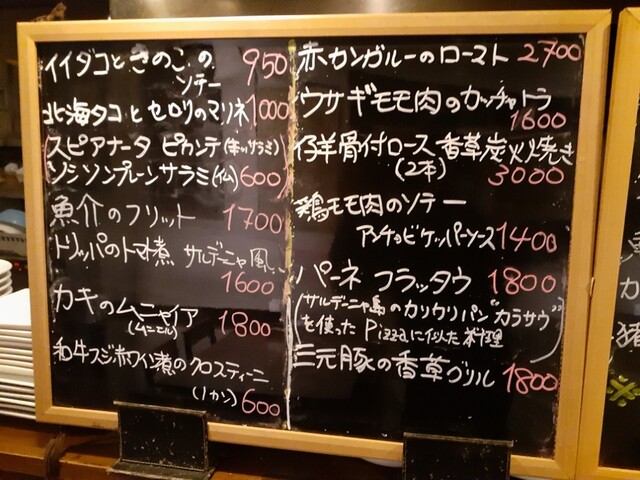 イイダコときのこの
ソテー 950
北海タコとセロリのマリネ 1000
スピアナータ ピカンテ(辛いサラミ)
ソシソンプレーンサラミ(仏) 600
魚介のフリット 1700
トリッパのトマト煮 サルデーニャ風
1600
カキのムニャイア
(ムニエル) 1800
和牛スジ赤ワイン煮のクロスティーニ
(1カン) 600
赤カンガルーのロースト 2700
ウサギモモ肉のカッチャトラ
1600
仔羊骨付ロース香草炭火焼き
(2本) 3000
鶏モモ肉のソテー
アンチョビケッパーソース 1400
パーネ フラッタウ 1800
(サルデーニャ島のカリカリパン"カラサウ"
を使ったPizzaに似た料理)
三元豚の香草グリル 1800
猪